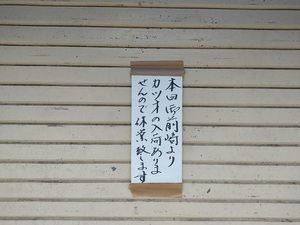 本日御前崎より
カツオの入荷ありま
せんので休業致します